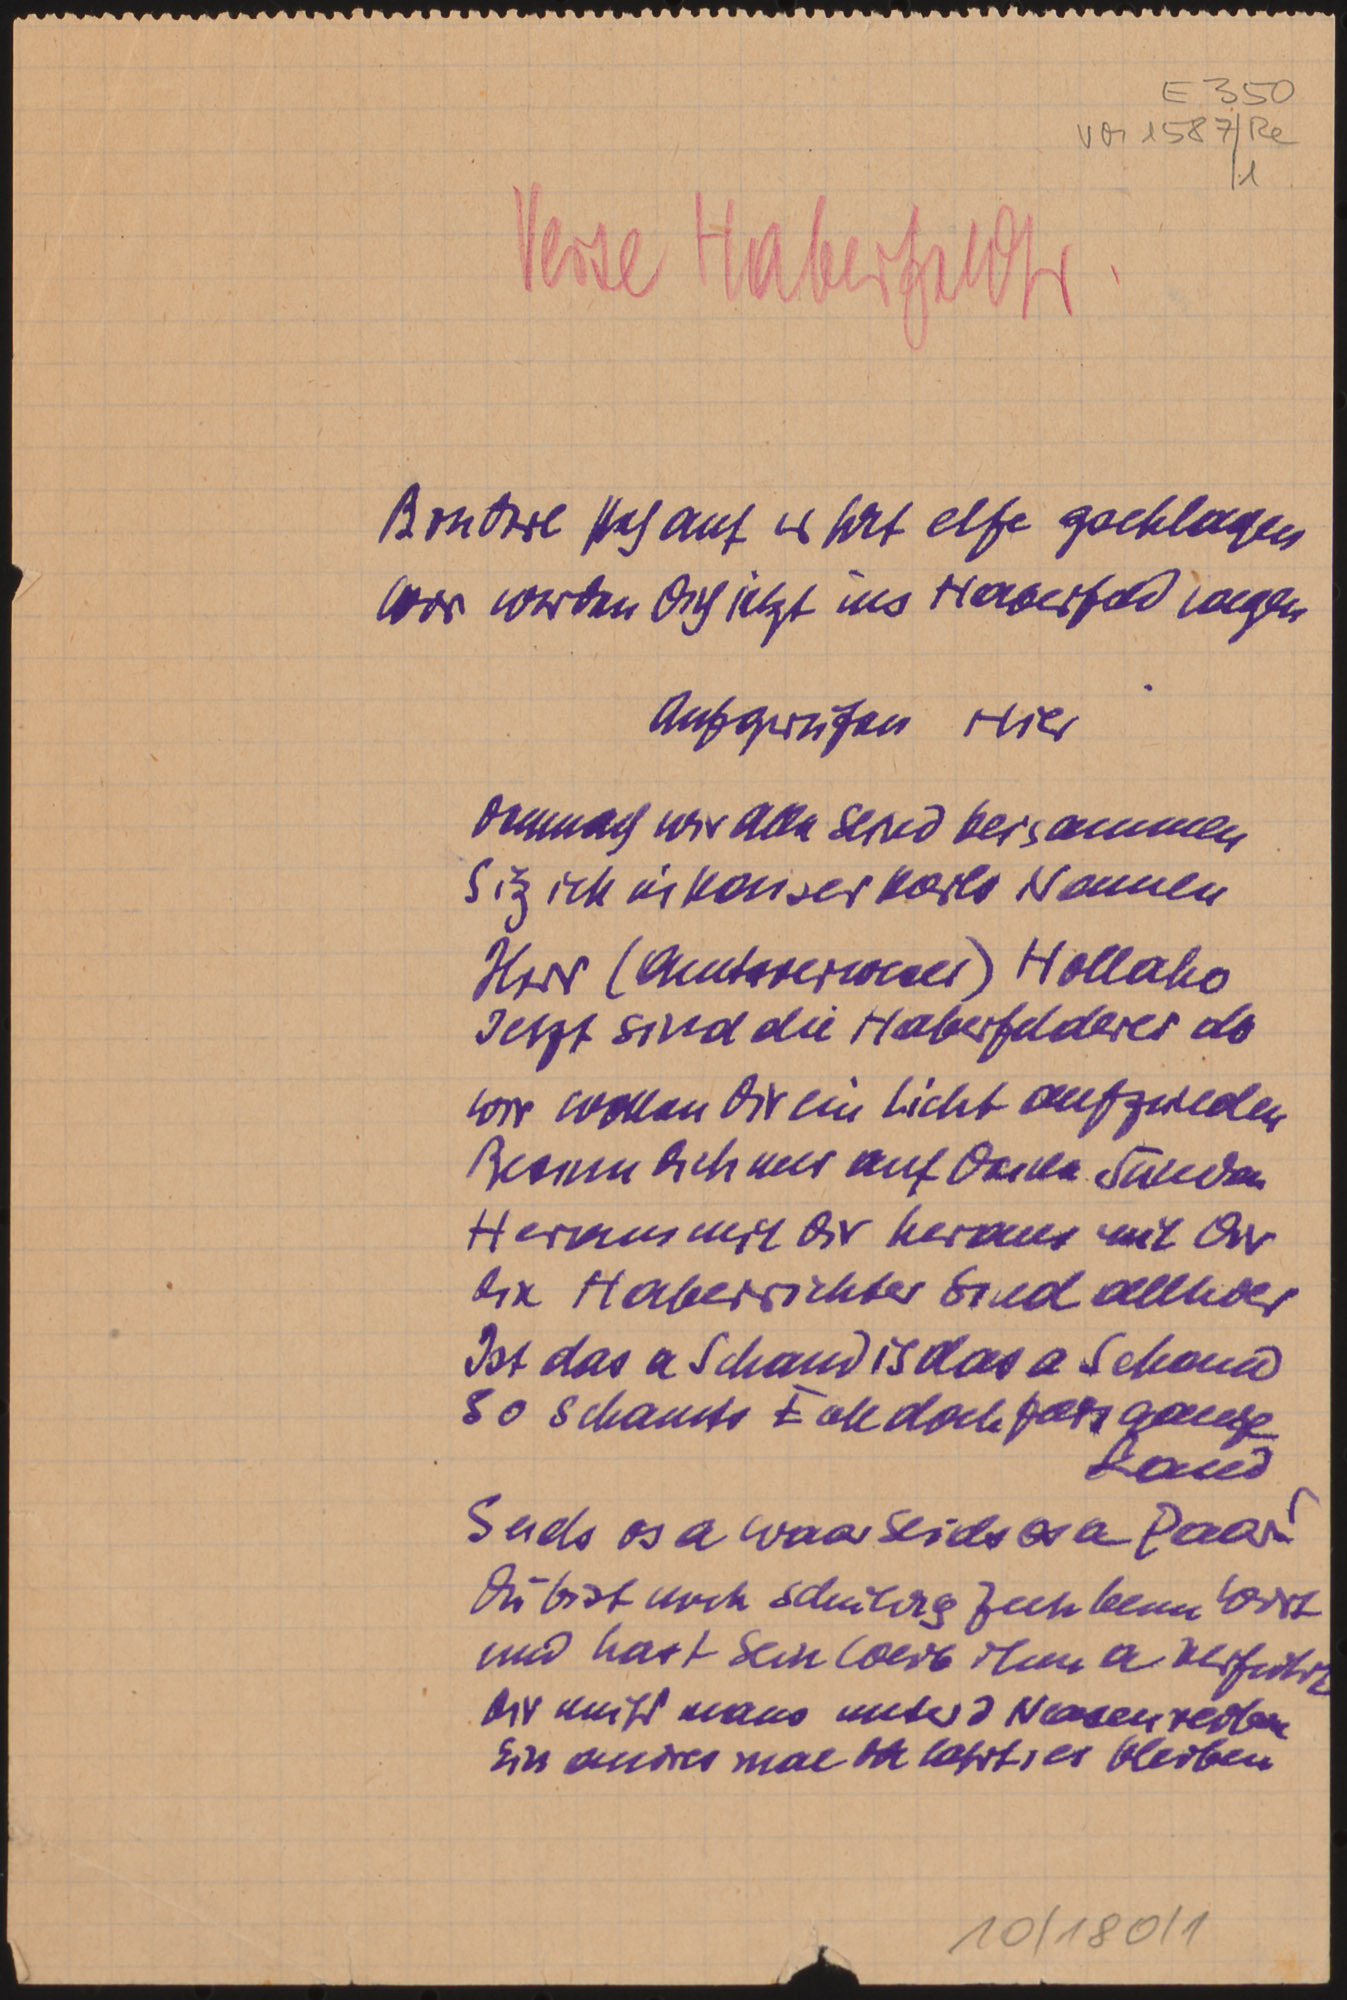 E 350
Vor 1587/Re
/1
Verse Haberfeldtr.
Bruderl steh auf es hat elfe gschlagen
wir werden Dich jetzt ins Haberfeld jagen
Aufgerufen Hier
Demnach wir alle seind beisammen
Sitz ich in Kaiser Karls Namen
Herr (Amtsverweser) Hollaho
Jetzt sind die Haberfelderer do
wir wollen Dir ein Licht aufzünden
Besinn Dich nur auf Deine Sünden
Heraus mit Dir heraus mit Dir
Die Haberrichter sind allhier
Ist das a Schand is das a Schand
So schamts Euch doch fürs ganze
Land
Seids os a waar seids os a Paar
Du bist noch schuldig Zech beim Wirt
und hast sein Weib ihm a verführt
Dir muss mans unter d Nasen reiben
Ein andres mal lasst es bleiben
10/180/1